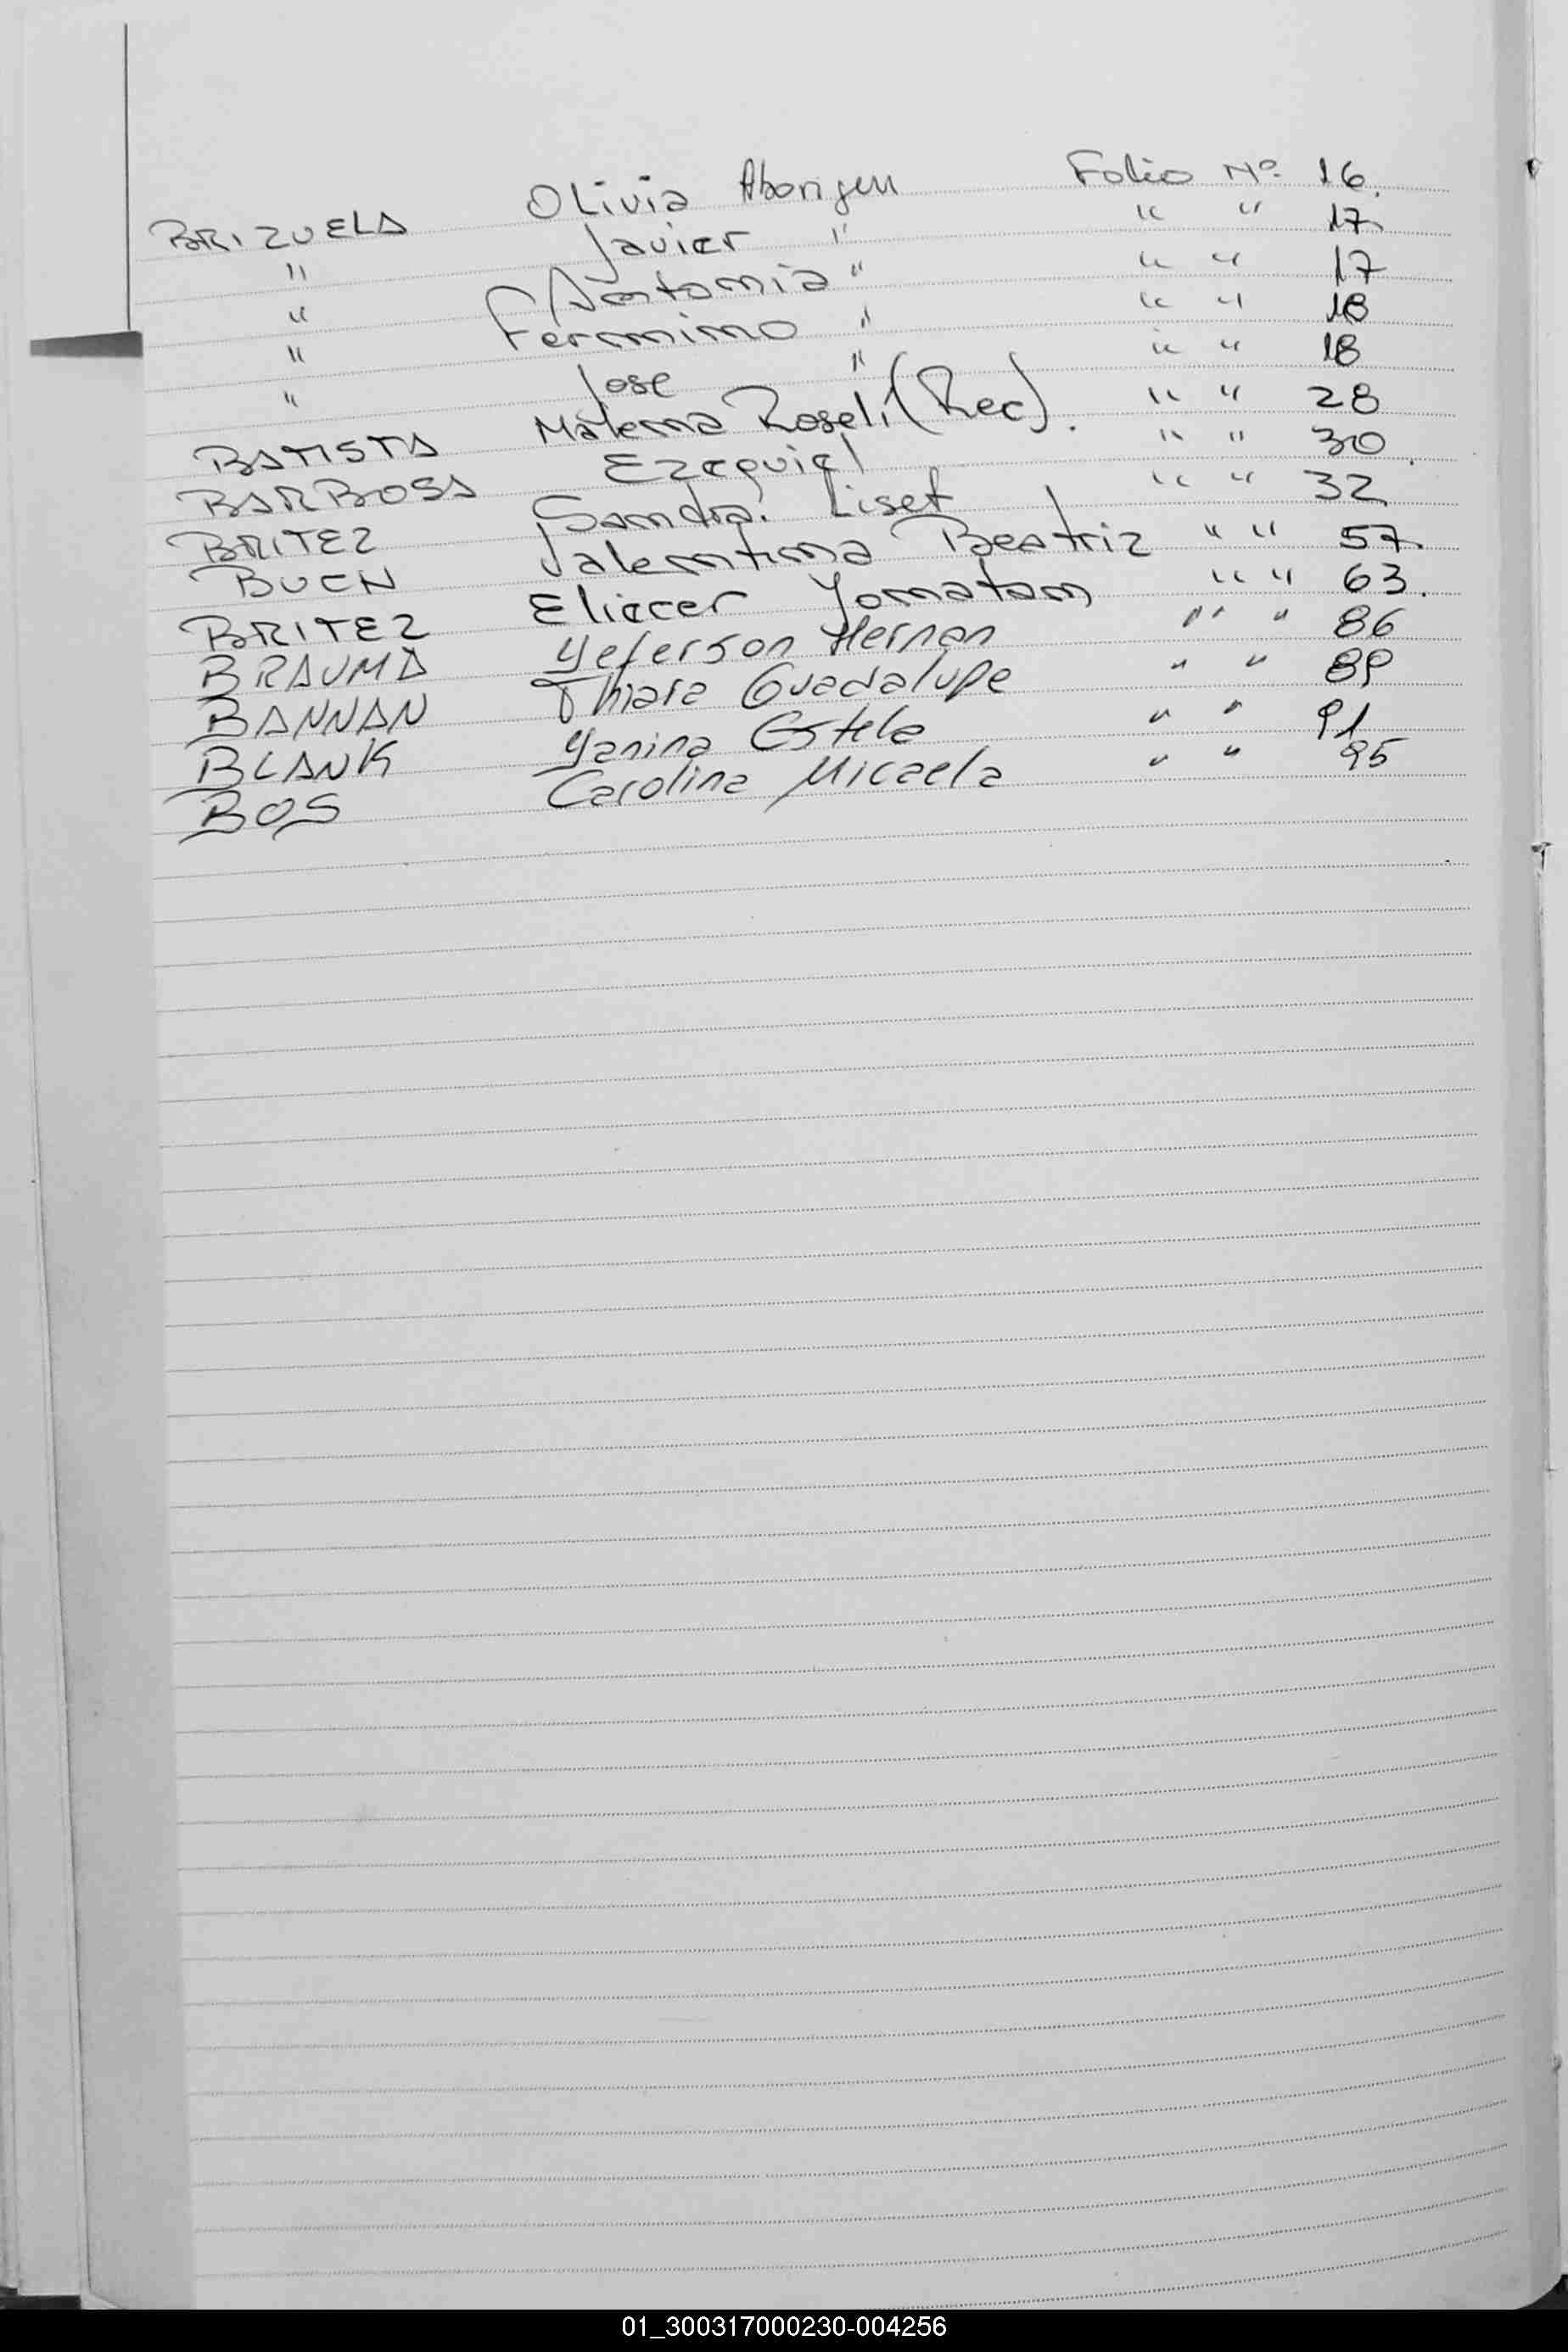 BRIZUELA Olivia Aborigen Folio Nº 16.
" Javier " " " 17.
" Antonia " " " 17
" Fermino " " " 18
" Jose " " " 18
BATISTA Malena Roseli (Rec). " " 28
BARBOSA Ezequiel " " 30.
BRITEZ Sandra Liset " " 32
BUEN Valentina Beatriz " " 57.
BRITEZ Eliecer Yonatan " " 63.
BRAUMA Yeferson Hernan " " 86
BANNAN Thiara Guadalupe " " 89
BLANK Yanina Estela " " 91
BOS Carolina Micaela " " 95
01_300317000230-004256